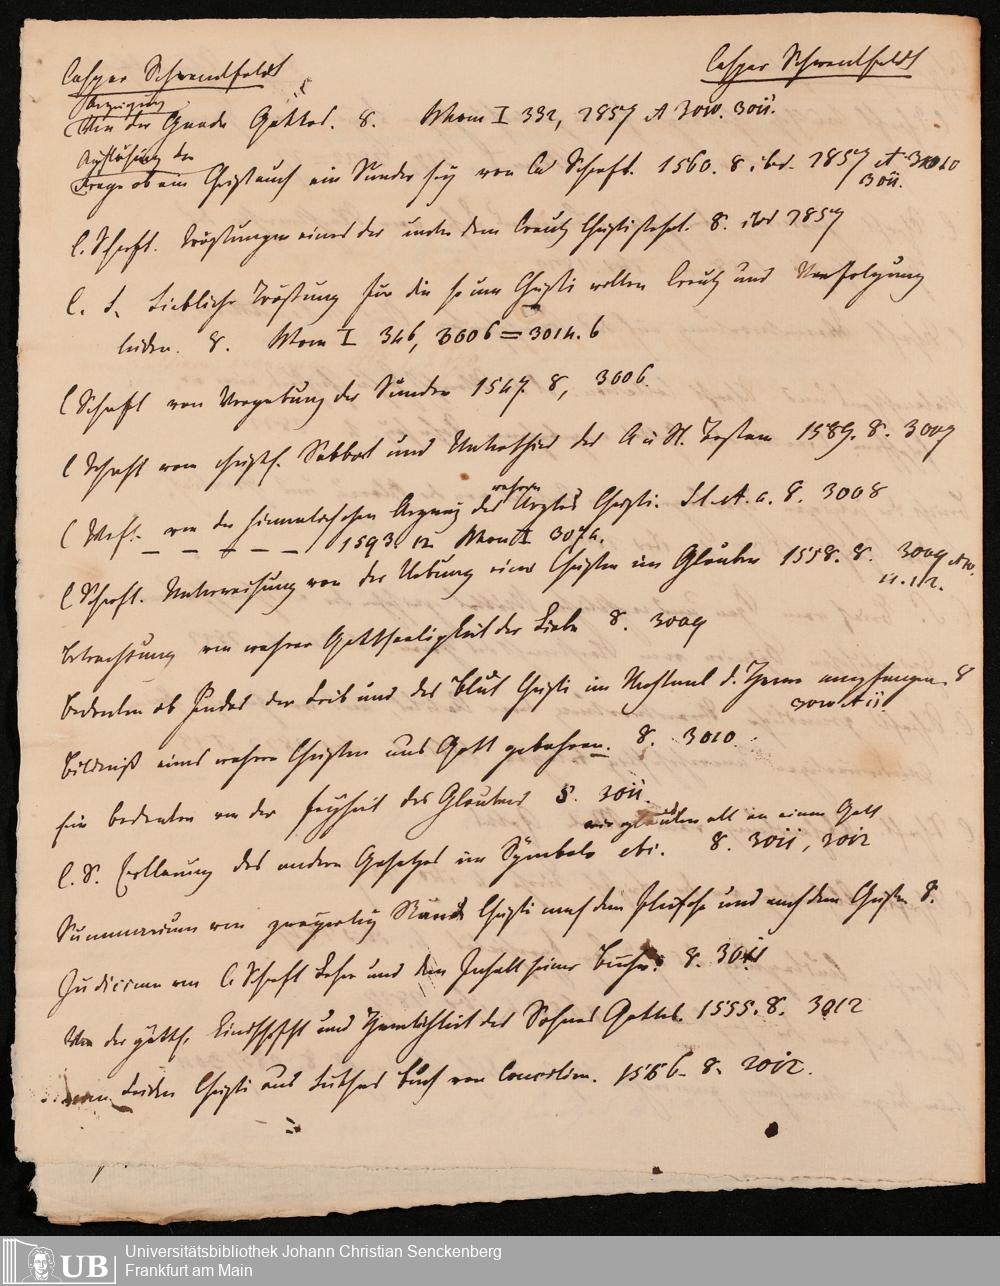 Casper Schwenkfeldt Casper Schwenkfeldt
Anzeigung
Von der Gnade Gottes. 8. Wom I 332, 2857 A 3010. 3011.
Auflösung der
Frage ob ein Christ auch ein Sunder sey von C. Schwf. 1560. 8 ibid. 2857 A 3010
3011.
C. Schwf. Tröstungen eines der unter dem Creutz Christi stehet. 8. ibid 2857
C. S. Liebliche Tröstung für die so um Christi willen Creutz und Verfolgung
leiden. 8. Wom I 346, 3006 = 3014. 6
C Schwft von Vergebung der Sunden 1547 8, 3006.
C Schwft vom christl. Sabbat und Unterschied des A u N. Testam 1589. 8. 3007
C Schwf. von der himmelischen Arzney des wahren Arztes Christi. s. l. et. a. 8. 3008
_ _ _ _ _ 1593. 12 Wom II 307a.
C Schwft. Unterweisung von der Uebung eines Christen im Glauben 1558. 8. 3009
11. 12.
Betrachtung von wahrer Gottseeligkeit der Liebe 8. 3009
Bedenken ob Judas den Leib und das Blut Christi im Nachtmal d. Herrn empfangen. 8
3010 A 11.
Bildniß eines wahren Christen aus Gott gebohren. 8. 3010.
Ein Bedenken von der Freyheit des Glaubens 8. 3011.
wir glauben all an einen Gott
C. S. Erklerung des andern Gesetzes im Symbolo etc. 8. 3011, 3012
Summarium von zweyerley Stande Christi nach dem Fleische und nach dem Geiste 8.
Judicium von C Schwft Lehr und dem Inhalt seiner Bucher. 8. 3011
Von der göttl. Kindschafft und Herrlichkeit des Sohnes Gottes. 1555. 8. 3012
vom Leiden Christi aus Luthers Buch von Concilien. 1556. 8. 3012.
Universitätsbibliothek Johann Christian Senckenberg
Frankfurt am Main
UB